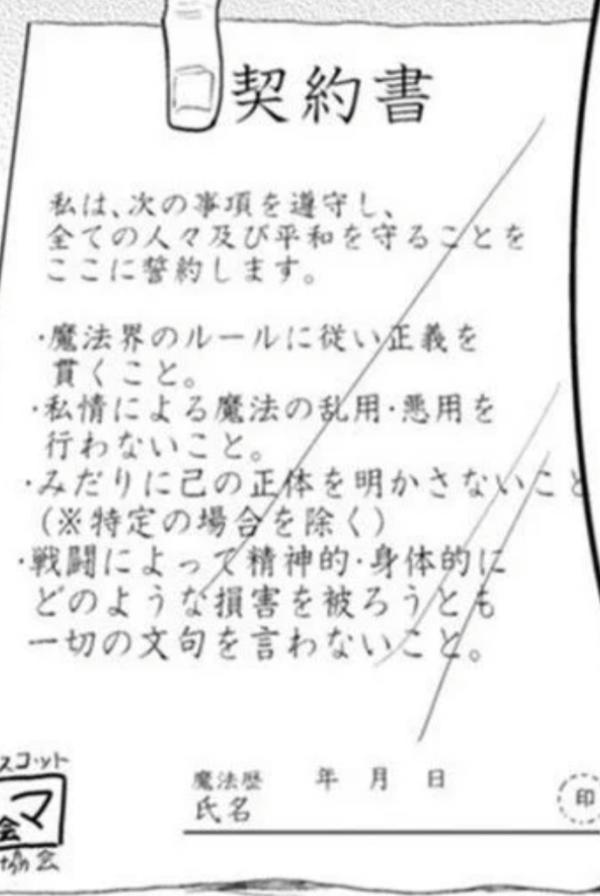 契約書
私は、次の事項を遵守し、
全ての人々及び平和を守ることを
ここに誓約します。
・魔法界のルールに従い正義を
貫くこと。
・私情による魔法の乱用・悪用を
行わないこと。
・みだりに己の正体を明かさないこと
(※特定の場合を除く)
・戦闘によって精神的・身体的に
どのような損害を被ろうとも
一切の文句を言わないこと。
スコット
マ
会
協会
魔法歴 年 月 日
氏名
印